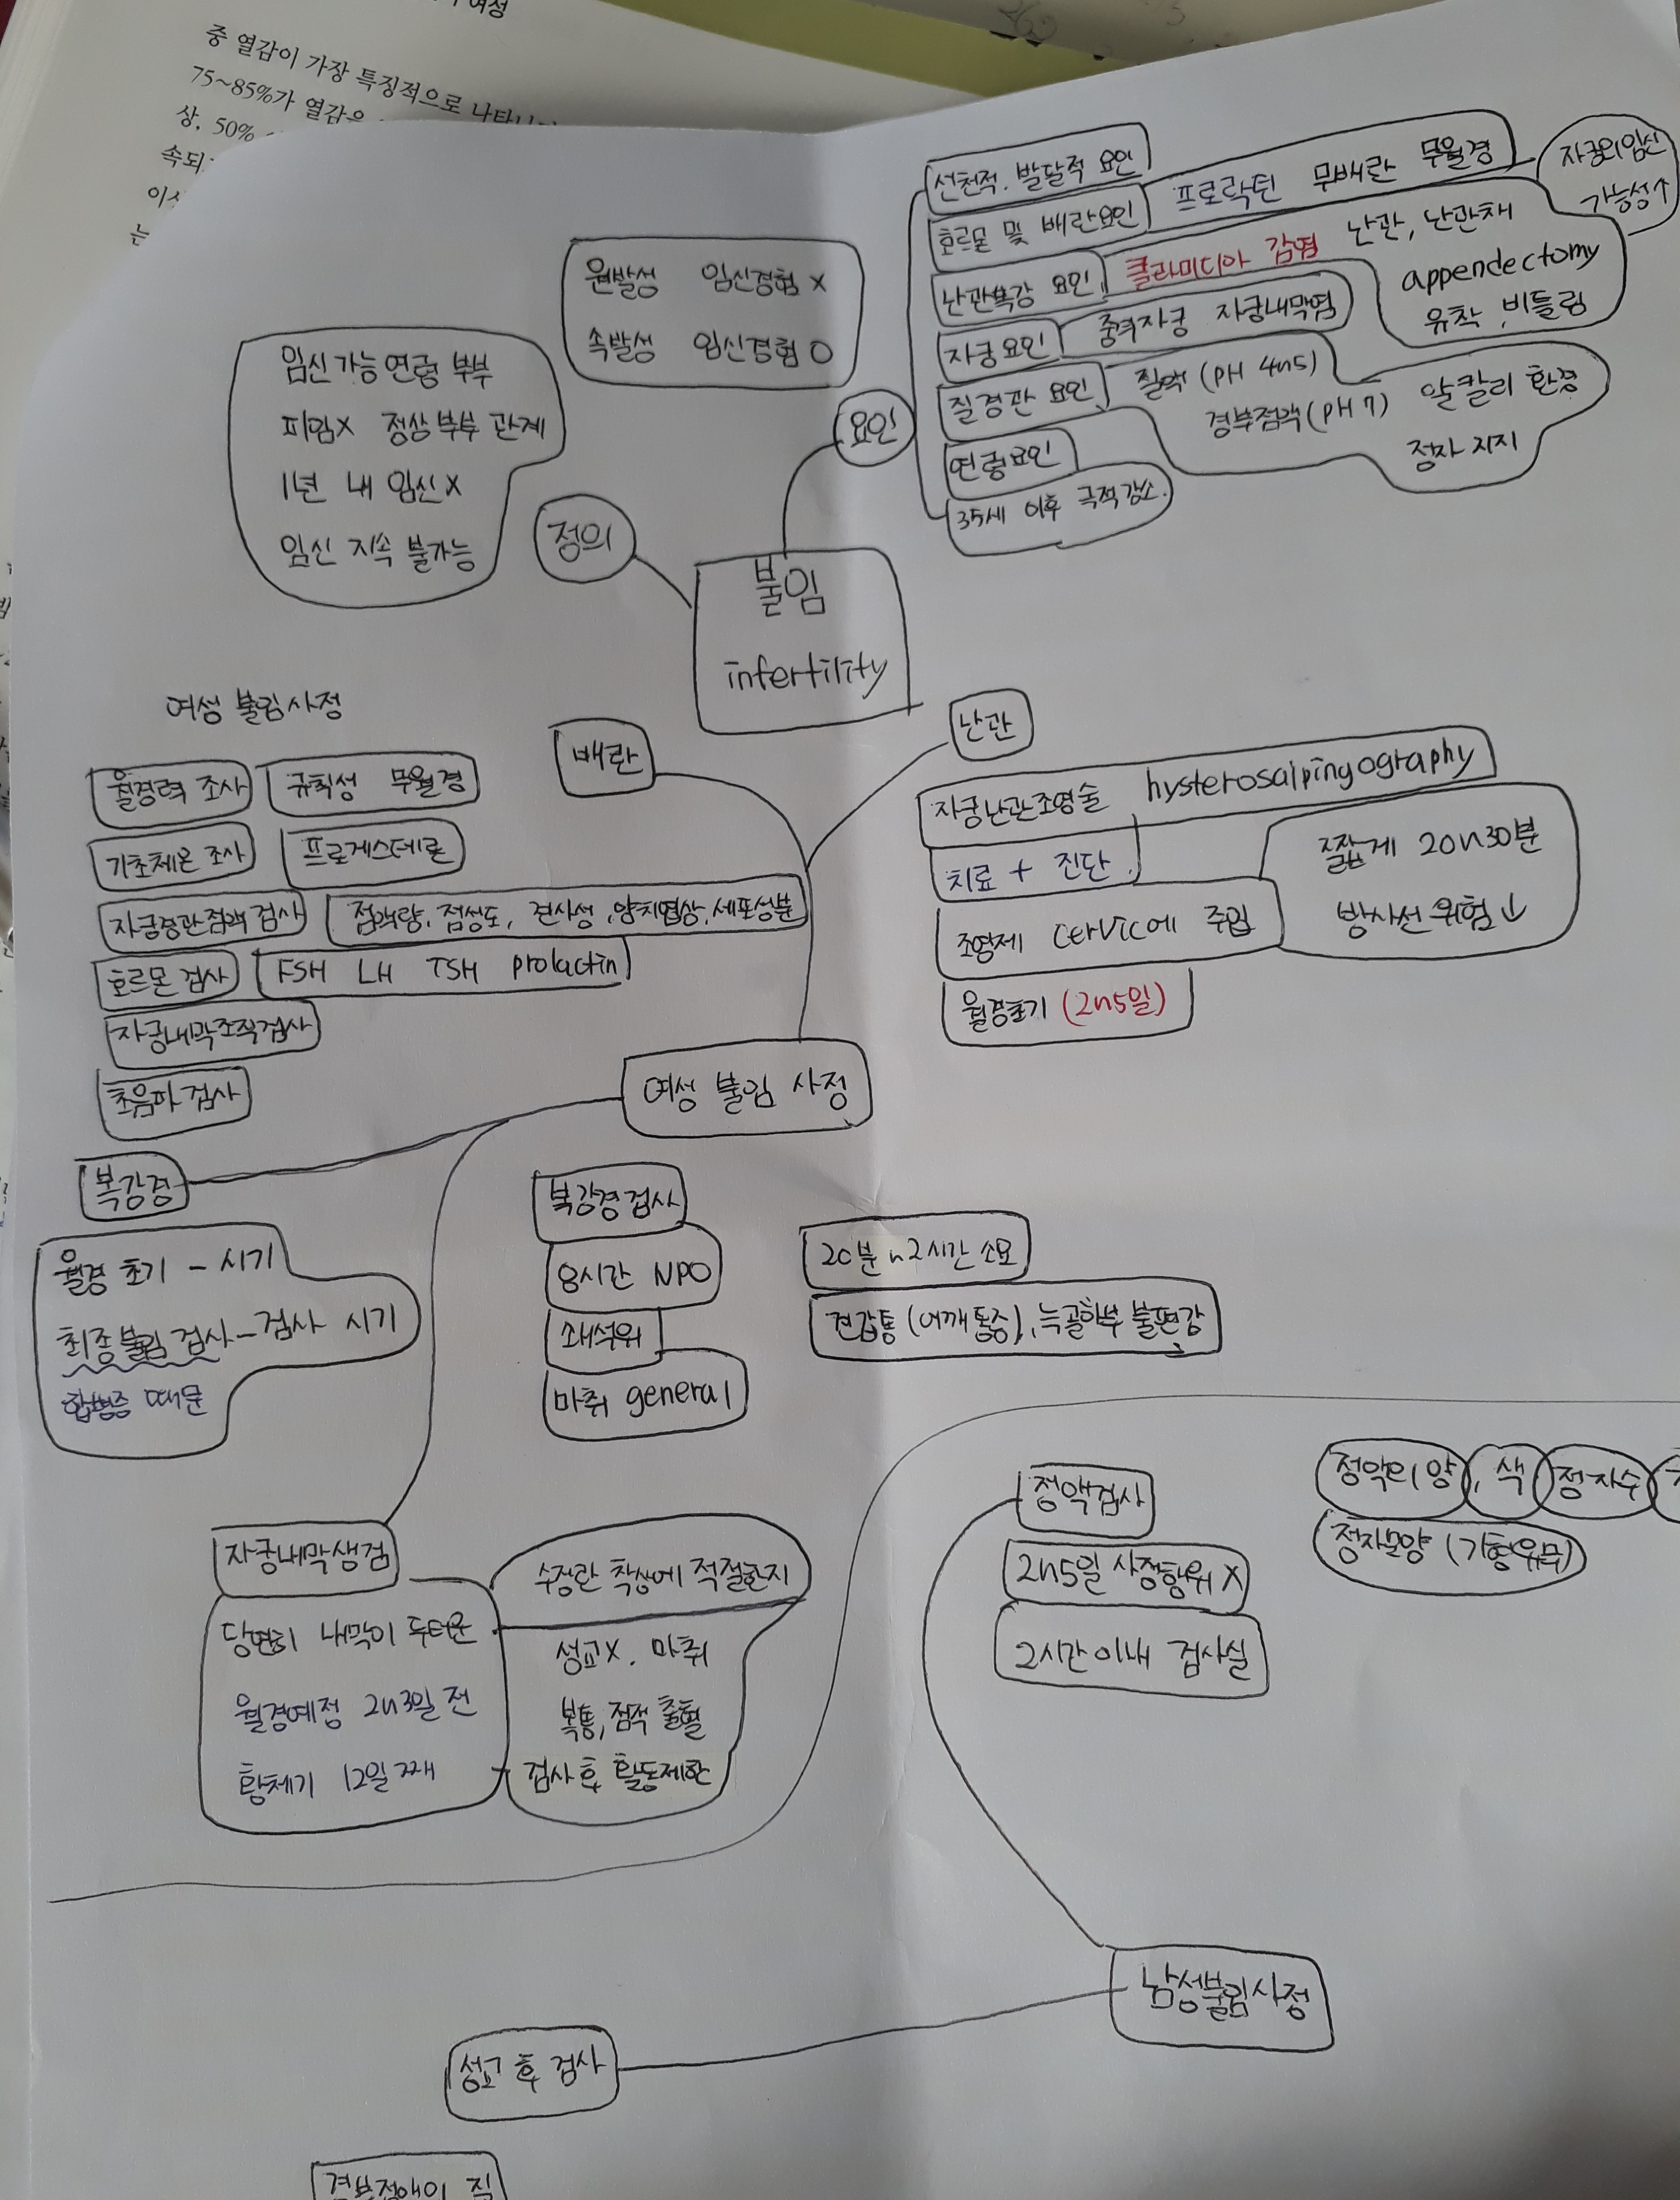 여성
중 열감이 가장 특징적으로 나타나
75~85%가 열감을
상, 50%
속되
이상
는
원발성 임신경험 X
속발성 임신경험 O
임신 가능 연령 부부
피임X 정상 부부 관계
1년 내 임신 X
임신 지속 불가능
정의
요인
불임
infertility
선천적. 발달적 요인
호르몬 및 배란요인
프로락틴 무배란 무월경
난관복강 요인
클라미디아 감염 난관, 난관채
appendectomy
유착, 비틀림
자궁외임신
가능성↑
자궁요인
중격자궁 자궁내막염
질경관 요인
질액 (pH 4~5)
경부점액 (pH 7) 알칼리 환경
정자 지지
연령요인
35세 이후 극적감소.
여성 불림사정
월경력 조사
규칙성 무월경
기초체온 조사
프로게스테론
자궁경관점액 검사
점액량, 점성도, 견사성, 양치엽상, 세포성분
호르몬 검사
FSH LH TSH prolactin
자궁내막조직검사
초음파 검사
배란
난관
자궁난관조영술 hysterosalpingography
치료 + 진단.
조영제 cervic에 주입
월경초기 (2~5일)
짧게 20~30분
방사선 위험↓
여성 불임 사정
복강경
월경 초기 - 시기
최종불림 검사 - 검사 시기
합병증 때문
복강경검사
8시간 NPO
쇄석위
마취 general
20분~2시간 소요
견갑통 (어깨통증), 늑골하부 불편감
자궁내막생검
당연히 내막이 두터운
월경예정 2~3일 전
황체기 12일 째
수정란 착상에 적절한지
성교X. 마취
복통, 점적 출혈
검사 후 활동제한
정액검사
2~5일 사정행위 X
2시간이내 검사실
정액의 양, 색 정자수
정자모양 (기형유무)
남성불림사정
성교 후 검사
경부점액의 질